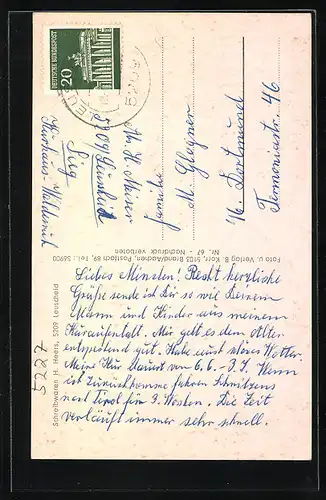 DEUTSCHE BUNDESPOST
20
5209
Abs. H. Meiser
5209 Leuscheid
Sieg
Kurhaus-Waldesruh
Familie
M. Glagner
46 Dortmund
Tremoniastr. 46
Foto u. Verlag B. Korr, 5105 Brand/Aachen, Postfach 89, Tel.: 56900
Nr. 67 - Nachdruck verboten
Schreibwaren H. Heers, 5209 Leuscheid
5227
Liebes Minchen! Recht herzliche
Grüße sende ich Dir so wie Deinem
Mann und Kinder aus meinem
Kuraufenthalt. Mir geht es dem Alter
entsprechend gut. Habe auch schönes Wetter.
Meine Kur dauert vom 6.6.-3.7. Wenn
ich zurückkomme fahren Schnitzers
nach Tirol für 3. Wochen. Die Zeit
verläuft immer sehr schnell.